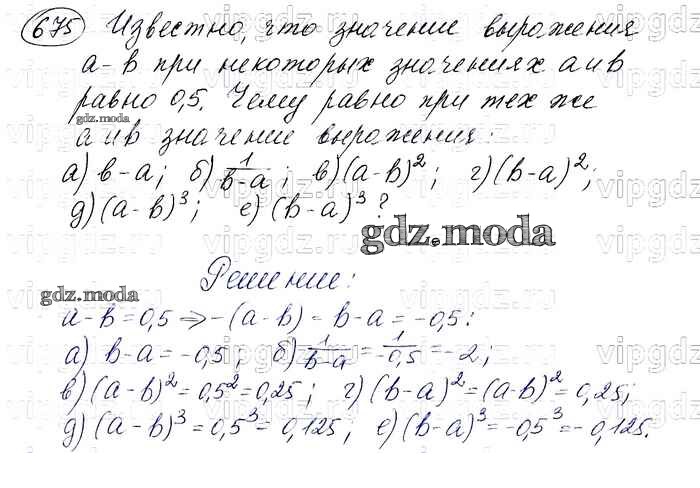 675 Известно, что значение выражения
a - b при некоторых значениях a и b
равно 0,5. Чему равно при тех же
gdz.moda
a и b значение выражения:
а) b - a; б) 1/(b-a); в) (a-b)²; г) (b-a)²;
д) (a-b)³; е) (b-a)³?
gdz.moda
Решение:
gdz.moda
a - b = 0,5 ⇒ -(a-b) = b-a = -0,5:
а) b-a = -0,5; б) 1/(b-a) = 1/-0,5 = -2;
в) (a-b)² = 0,5² = 0,25; г) (b-a)² = (a-b)² = 0,25;
д) (a-b)³ = 0,5³ = 0,125; е) (b-a)³ = -0,5³ = -0,125.